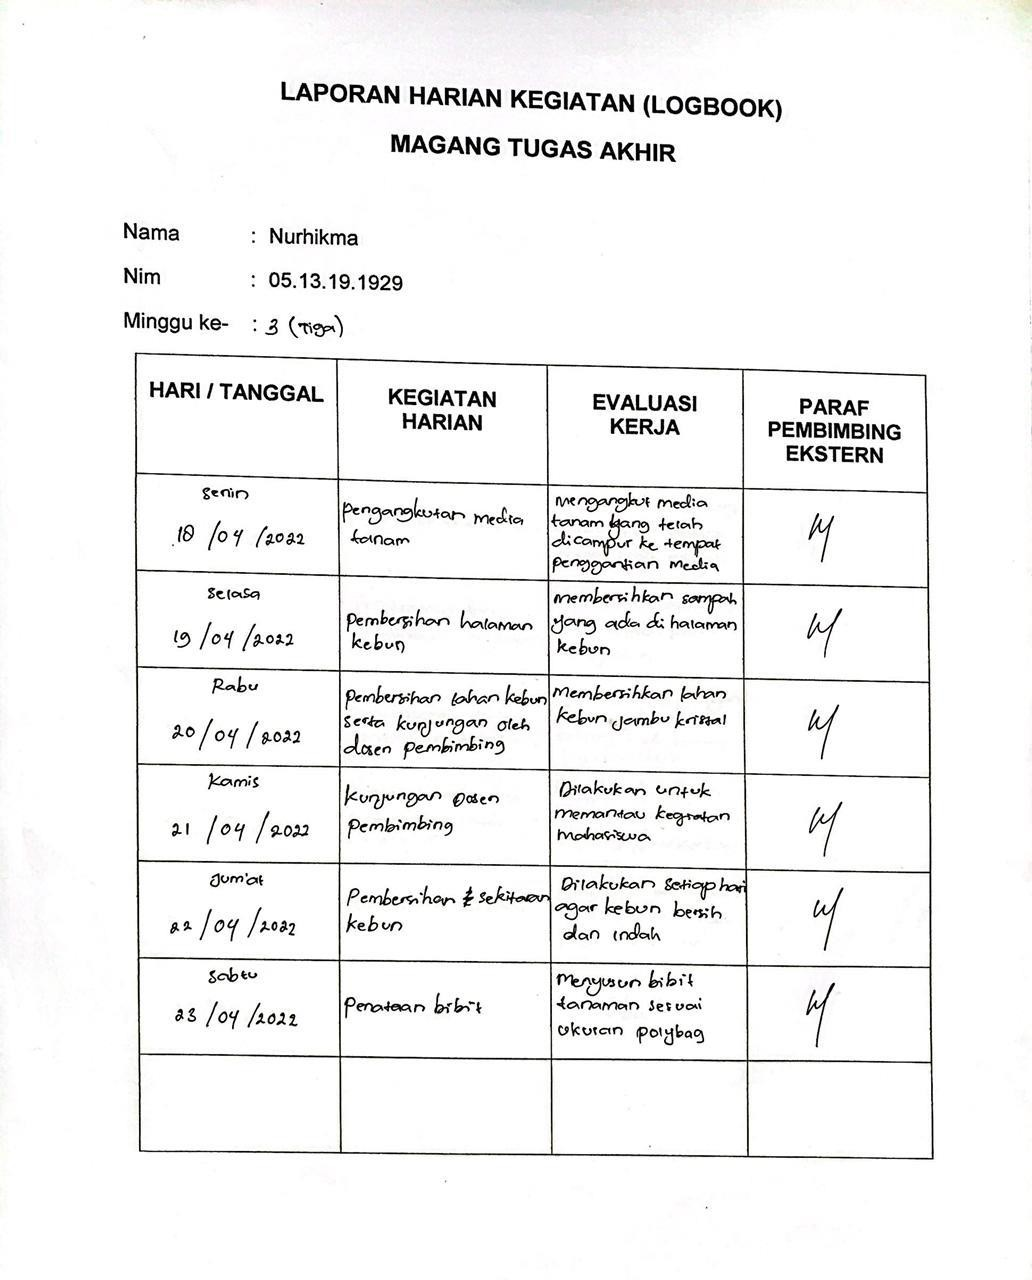 LAPORAN HARIAN KEGIATAN (LOGBOOK)
MAGANG TUGAS AKHIR
Nama : Nurhikma
Nim : 05.13.19.1929
Minggu ke- : 3 (Tiga)
HARI / TANGGAL
KEGIATAN
HARIAN
EVALUASI
KERJA
PARAF
PEMBIMBING
EKSTERN
Senin
18 /04 /2022
pengangkutan media
tanam
Mengangkut media
tanam yang telah
dicampur ke tempat
penggantian media
Selasa
19 /04 /2022
pembersihan halaman
kebun
membersihkan sampah
yang ada di halaman
kebun
Rabu
20/04 /2022
Pembersihan lahan kebun
serta kunjungan oleh
dosen pembimbing
Membersihkan lahan
kebun jambu kristal
Kamis
21 /04 /2022
kunjungan Dosen
Pembimbing
Dilakukan untuk
memantau kegiatan
mahasiswa
Jum'at
22 /04 /2022
Pembersihan sekitaran
kebun
Dilakukan setiap hari
agar kebun bersih
dan indah
Sabtu
23 /04 /2022
Penataan bibit
Menyusun bibit
tanaman sesuai
ukuran polybag